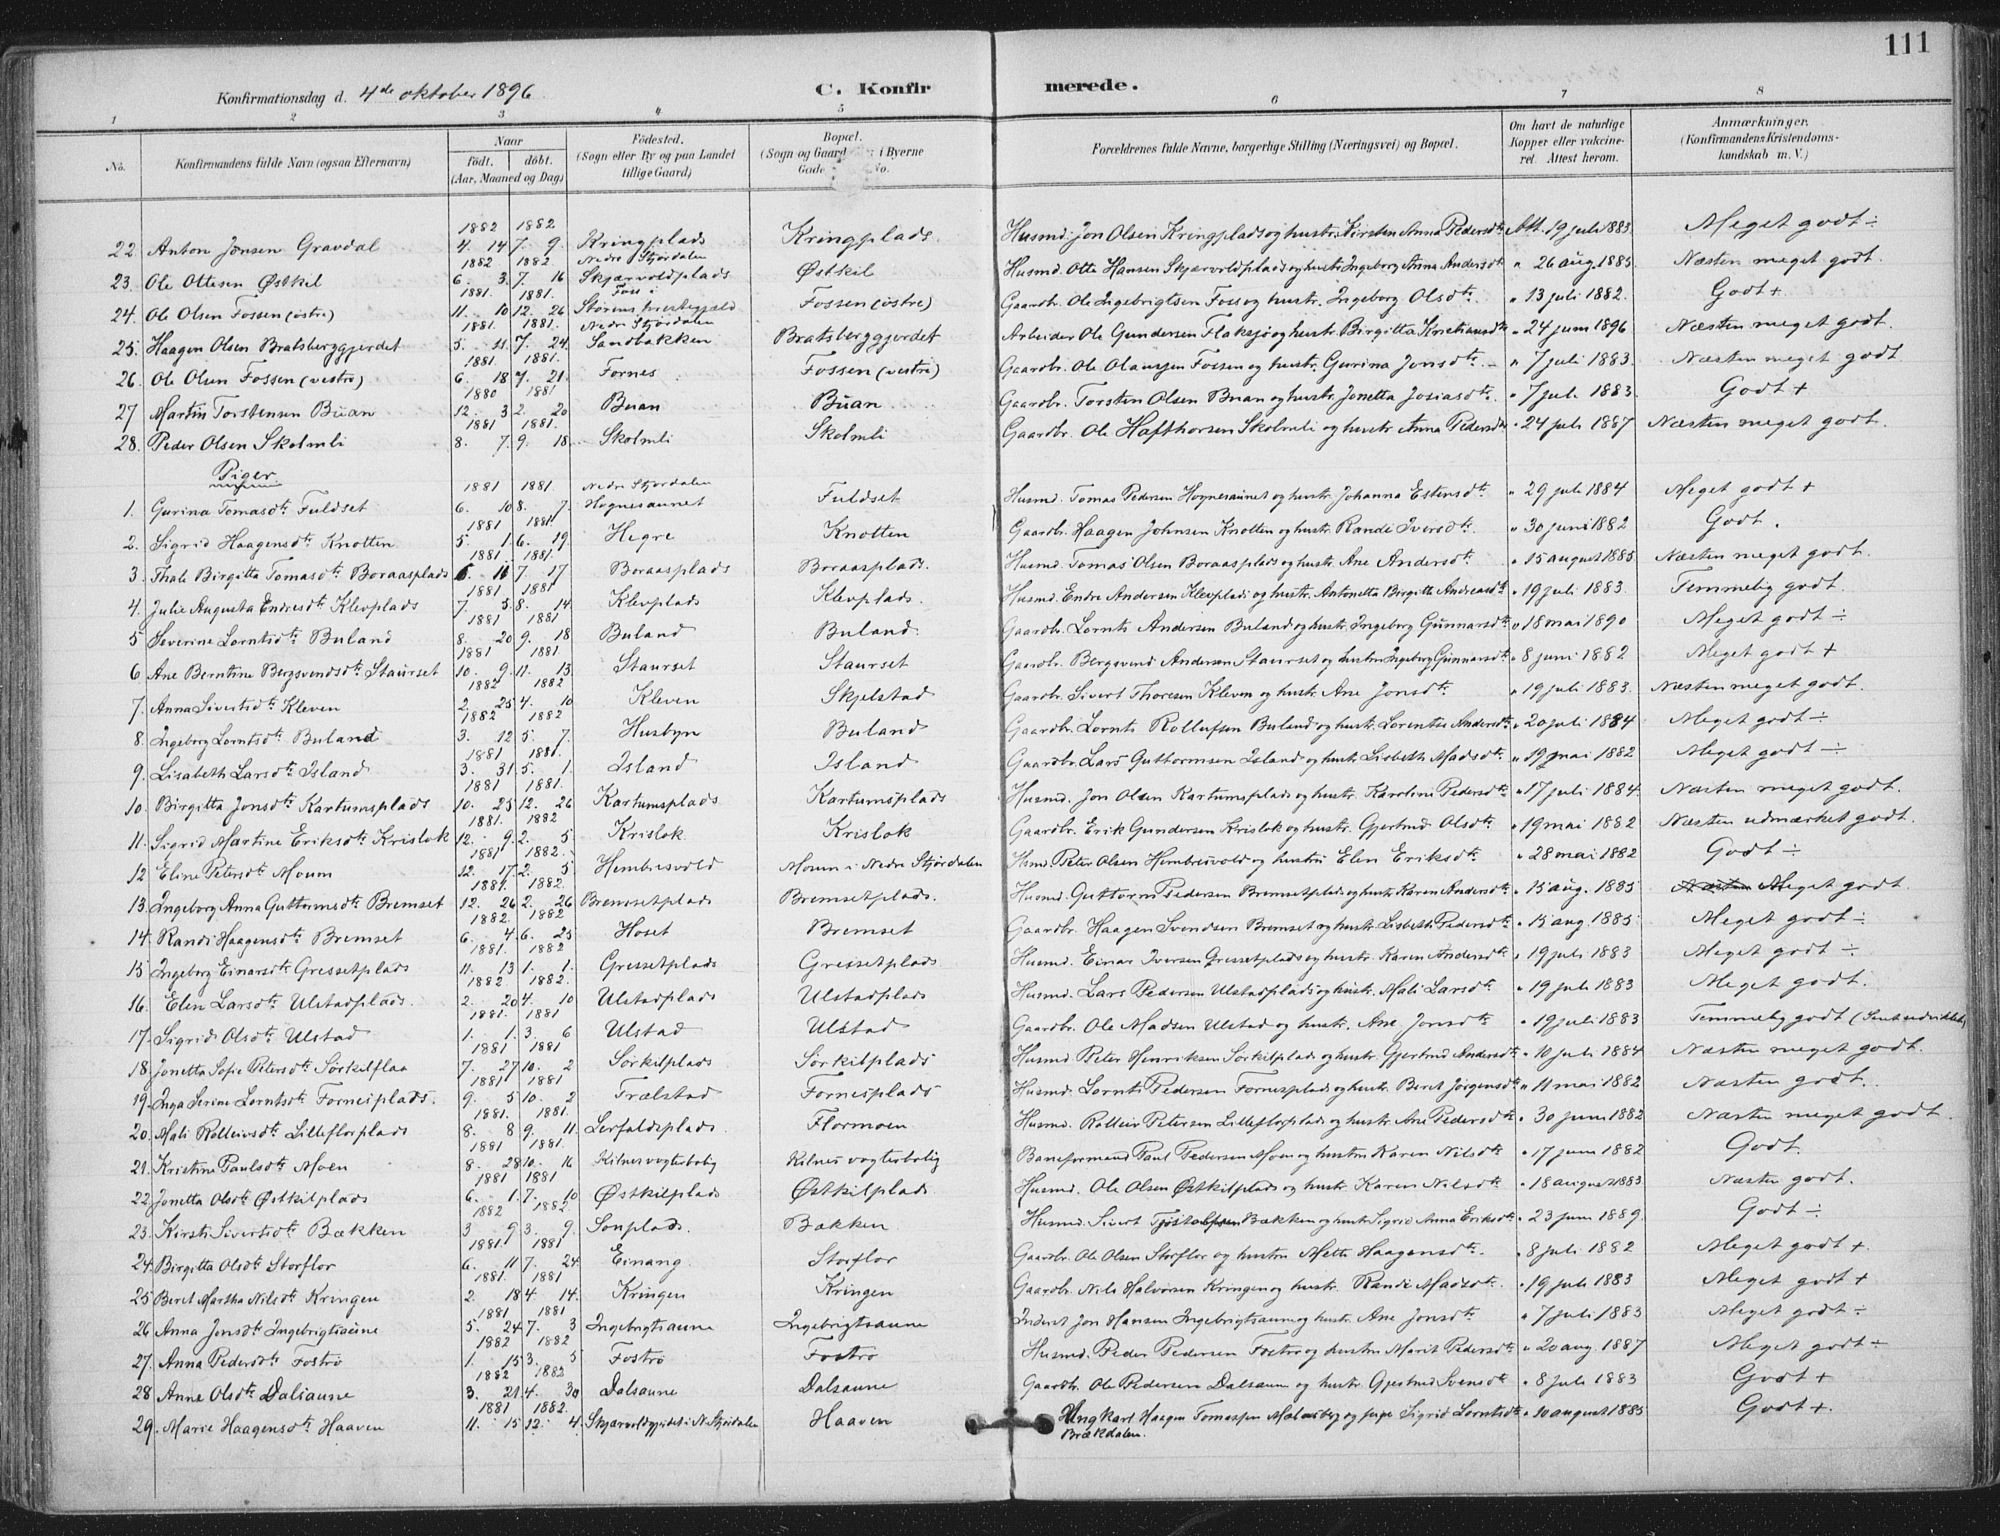 111
Konfirmationsdag d. 4de oktober 1896 C. Konfirmerede.
1 2 3 4 5 6 7 8
No. Konfirmandens fulde Navn (ogsaa Efternavn) Naar födt. döbt. (Aar, Maaned og Dag) Födested. (Sogn eller By og paa Landet tillige Gaard) Bopæl. (Sogn og Gaard i Byerne Gade No. Forældrenes fulde Navne, borgerlige Stilling (Næringsvei) og Bopæl. Om havt de naturlige Kopper eller vakcineret. Attest herom. Anmærkninger. (Konfirmandens Kristendomskundskab m. V.)
22 Anton Jonsen Gravdal 1882 4. 14 1882 7. 9. Kringplads Kringplads. Husmd. Jon Olsen Kringplads og hustr. Kirsten Anna Pedersdtr Att. 19 juli 1883. Meget godt ÷
23. Ole Ottesen Østkil 1882 6. 3. 1882 7. 16 Nedre Stjördalen Skjærvoldplads Østkil Husmd. Otte Hansen Skjærvoldplads og hustr. Ingeborg Anna Andersdtr " 26 aug. 1885. Næsten meget godt.
24. Ole Olsen Fossen (östre) 1881. 11. 10 1881. 12. 26 Foss i Störens præstegjæld Fossen (östre) Gaardbr. Ole Ingebrigtsen Foss og hustr. Ingeborg Olsdtr. " 13 juli 1882. Godt +
25. Haagen Olsen Bratsberggjerdet 1881. 5. 11. 1881. 7. 24. Nedre Stjördalen Sandbakken Bratsberggjerdet Arbeider Ole Gundersen Flaksjö og hustr. Birgitta Kristiansdtr " 24 juni 1896 Næsten meget godt.
26. Ole Olsen Fossen (vestre) 1881. 6. 18 1881. 7. 21. Fornes Fossen (vestre) Gaardbr. Ole Olaussen Fossen og hustr. Gurina Jonsdtr. " 7 juli 1883. Næsten meget godt
27 Martin Torstensen Buan 1880 12. 3 1881 2. 20 Buan Buan Gaardbr. Torsten Olsen Buan og hustr. Jonetta Josiasdtr. " 7 juli 1883. Godt +
28. Peder Olsen Skolmli 1881 8. 7. 1881. 9. 18. Skolmli Skolmli Gaardbr. Ole Hafthorsen Skolmli og hustr. Anna Pedersdtr " 24 juli 1887 Næsten meget godt.
Piger
1. Gurina Tomasdtr Fuldset 1881 6. 10 1881. 8. 7. Nedre Stjördalen Hognesaunet Fuldset Husmd. Tomas Pedersen Hognesaunet og hustr. Johanna Estensdtr " 29 juli 1884 Meget godt +
2. Sigrid Haagensdtr Knotten 1881 5. 1. 1881 6. 19 Hegre Knotten Gaardbr. Haagen Johnsen Knotten og hustr. Randi Iversdtr. " 30 juni 1882 Godt.
3. Thale Birgitta Tomasdtr Boraasplads 1881 6. 11 1881. 7. 17 Boraasplads Boraasplads. Husmd. Tomas Olsen Boraasplads og hustr. Ane Andersdtr " 15 august 1885 Næsten meget godt.
4. Julie Augusta Endresdtr Klevplads 1881 7. 3. 1881 8. 14 Klevplads Klevplads. Husmd. Endre Andersen Klevplads og hustr. Antonetta Birgitte Andreasdtr " 19 juli 1883. Temmelig godt.
5 Severine Lorntsdtr Buland 1881. 8. 20 1881. 9. 18 Buland Buland. Gaardbr. Lornts Andersen Buland og hustr. Ingeborg Gunnarsdtr " 18 mai 1890 Meget godt ÷
6 Ane Berntine Bergsvendsdtr Staurset 1881 10. 9. 1881. 11. 13 Staurset Staurset Gaardbr. Bergsvend Andersen Staurset og hustr. Ingeborg Gunnarsdtr " 8 juni 1882 Meget godt +
7. Anna Sivertsdtr Kleven 1882 2. 25 1882 4. 10 Kleven Skjelstad Gaardbr. Sivert Thoresen Kleven og hustr. Ane Jonsdtr " 19 juli 1883. Næsten meget godt.
8. Ingeborg Lorntsdtr Buland 1882 3. 12 1882 5. 7. Husbyn Buland Gaardbr. Lornts Rollufsen Buland og hustr. Lorentse Andersdtr " 20 juli 1884 Meget godt ÷
9. Lisabeth Larsdtr Island 1881 3. 31. 1881. 5. 1. Island Island Gaardbr. Lars Guttormsen Island og hustr. Lisbeth Madsdtr " 19 mai 1882 Meget godt ÷
10. Birgitta Jonsdtr Kartumsplads 1881 10. 25 1881. 12. 26 Kartumsplads Kartumsplads Husmd. Jon Olsen Kartumsplads og hustr. Karoline Pedersdtr " 17 juli 1884. Næsten meget godt.
11. Sigrid Martine Eriksdtr Krislok 1881. 12. 9. 1882 2. 5 Krislok Krislok Gaardbr. Erik Gundersen Krislok og hustr. Gjertrud Olsdtr " 19 mai 1882 Næsten udmærket godt.
12 Eline Petersdtr Moum 1881 12. 17. 1882. 2. 5 Hembresvold Moum i Nedre Stjördalen Hsmd. Peter Olsen Hembresvold og hustru Elen Eriksdtr. " 28 mai 1882 Godt ÷
13. Ingeborg Anna Guttormsdtr Bremset 1881. 12. 26 1882. 2. 26 Bremsetplads Bremsetplads. Husmd. Guttorm Pedersen Bremsetplads og hustr. Karen Andersdtr " 15 aug. 1885 Næsten Meget godt.
14. Randi Haagensdtr Bremset 1882. 6. 4. 1882 6. 25 Hoset Bremset Gaardbr. Haagen Svendsen Bremset og hustr. Lisbeth Pedersdtr " 15 aug. 1885 Meget godt ÷
15 Ingeborg Einarsdtr Gressetplads 1881. 11. 13 1882 1. 1. Gressetplads Gressetplads Husmd. Einar Iversen Gressetplads og hustr. Karen Andersdtr " 19 juli 1883 Meget godt ÷
16. Elen Larsdtr Ulstadplads. 1882. 2. 20 1882. 4. 10 Ulstadplads Ulstadplads Husmd. Lars Pedersen Ulstadplads og hustr. Mali Larsdtr " 19 juli 1883 Meget godt.
17. Sigrid Olsdtr Ulstad 1881. 1. 1. 1881 3. 6 Ulstad Ulstad Gaardbr. Ole Madsen Ulstad og hustr. Ane Jonsdtr " 19 juli 1883 Temmelig godt (Sent udviklet)
18. Jonetta Sofie Petersdtr Sörkilflaa 1881 7. 27 1881 10. 2 Sörkilplads Sörkilplads Husmd. Peter Henriksen Sörkilplads og hustr. Gjertrud Andersdtr " 10 juli 1884 Næsten meget godt.
19. Inga Serine Lorntsdtr Fornesplads. 1881 9. 5 1881 10. 2 Trælstad Fornesplads Husmd. Lornts Pedersen Fornesplads og hustr. Beret Jörgensdtr " 11 mai 1882 Næsten godt.
20. Mali Rolleivsdtr Lilleflorplads 1881. 8. 8 1881. 9. 11. Lerfaldsplads. Flormoen Husmd. Rolleiv Petersen Lilleflorplads og hustr. Ane Pedersdtr " 30 juni 1882 Næsten meget godt.
21. Kristine Paulsdtr Moen 1881 8. 28 1881. 10. 16 Kilnes vogterbolig Kilnes vogterbolig Baneformand Paul Pedersen Moen og hustru Karen Nilsdtr " 17 juni 1882 Godt.
22. Jonetta Olsdtr Østkilplads 1881 6. 1. 1881 7. 10 Østkilplads Østkilplads Husmd. Ole Olsen Østkilplads og hustr. Karen Nilsdtr " 18 august 1883 Næsten godt.
23. Kirsti Sivertsdtr Bækken 1882 3 9 1882. 3. 9. Sonplads. Bækken Husmd. Sivert Bækken og hustr. Sigrid Anna Eriksdtr " 23 juni 1889. Godt ÷
24. Birgitta Olsdtr Storflor 1881. 6. 11 1881 7. 24 Einang. Storflor Gaardbr. Ole Olsen Storflor og hustru Mette Haagensdtr. " 8 juli 1882 Meget godt +.
25 Beret Martha Nilsdtr Kringen 1881. 2. 18 1881 4 14. Kringen Kringen Gaardbr. Nils Halvorsen Kringen og hustr. Randi Madsdtr. " 19 juli 1883 Meget godt +
26 Anna Jonsdtr Ingebrigtsaune 1881 5. 24 1881 7. 3 Ingebrigtsaune Ingebrigtsaune Inderst Jon Hansen Ingebrigtsaune og hustr. Ane Jonsdtr " 7 juli 1883 Meget godt ÷
27. Anna Pedersdtr Foströ 1882 1. 15 1882 3. 5 Foströ Foströ Husmd. Peder Pedersen Foströ og hustru Marit Pedersdtr " 20 aug. 1887 Meget godt ÷
28 Anne Olsdtr Dalsaune 1882 3. 21 1882 4. 30 Dalsaune Dalsaune Gaardbr. Ole Pedersen Dalsaune og hustr. Gjertrud Svensdtr " 8 juli 1883 Godt +
29. Marie Haagensdtr Haaven 1881 11. 15 1882. 12. 4. Skjærvoldgjerdet i N. Stjördalen Haaven Ungkarl Haagen Tomassen og pige Sigrid Lorntsdtr " 10 august 1885 Godt +.
Brækdalen.